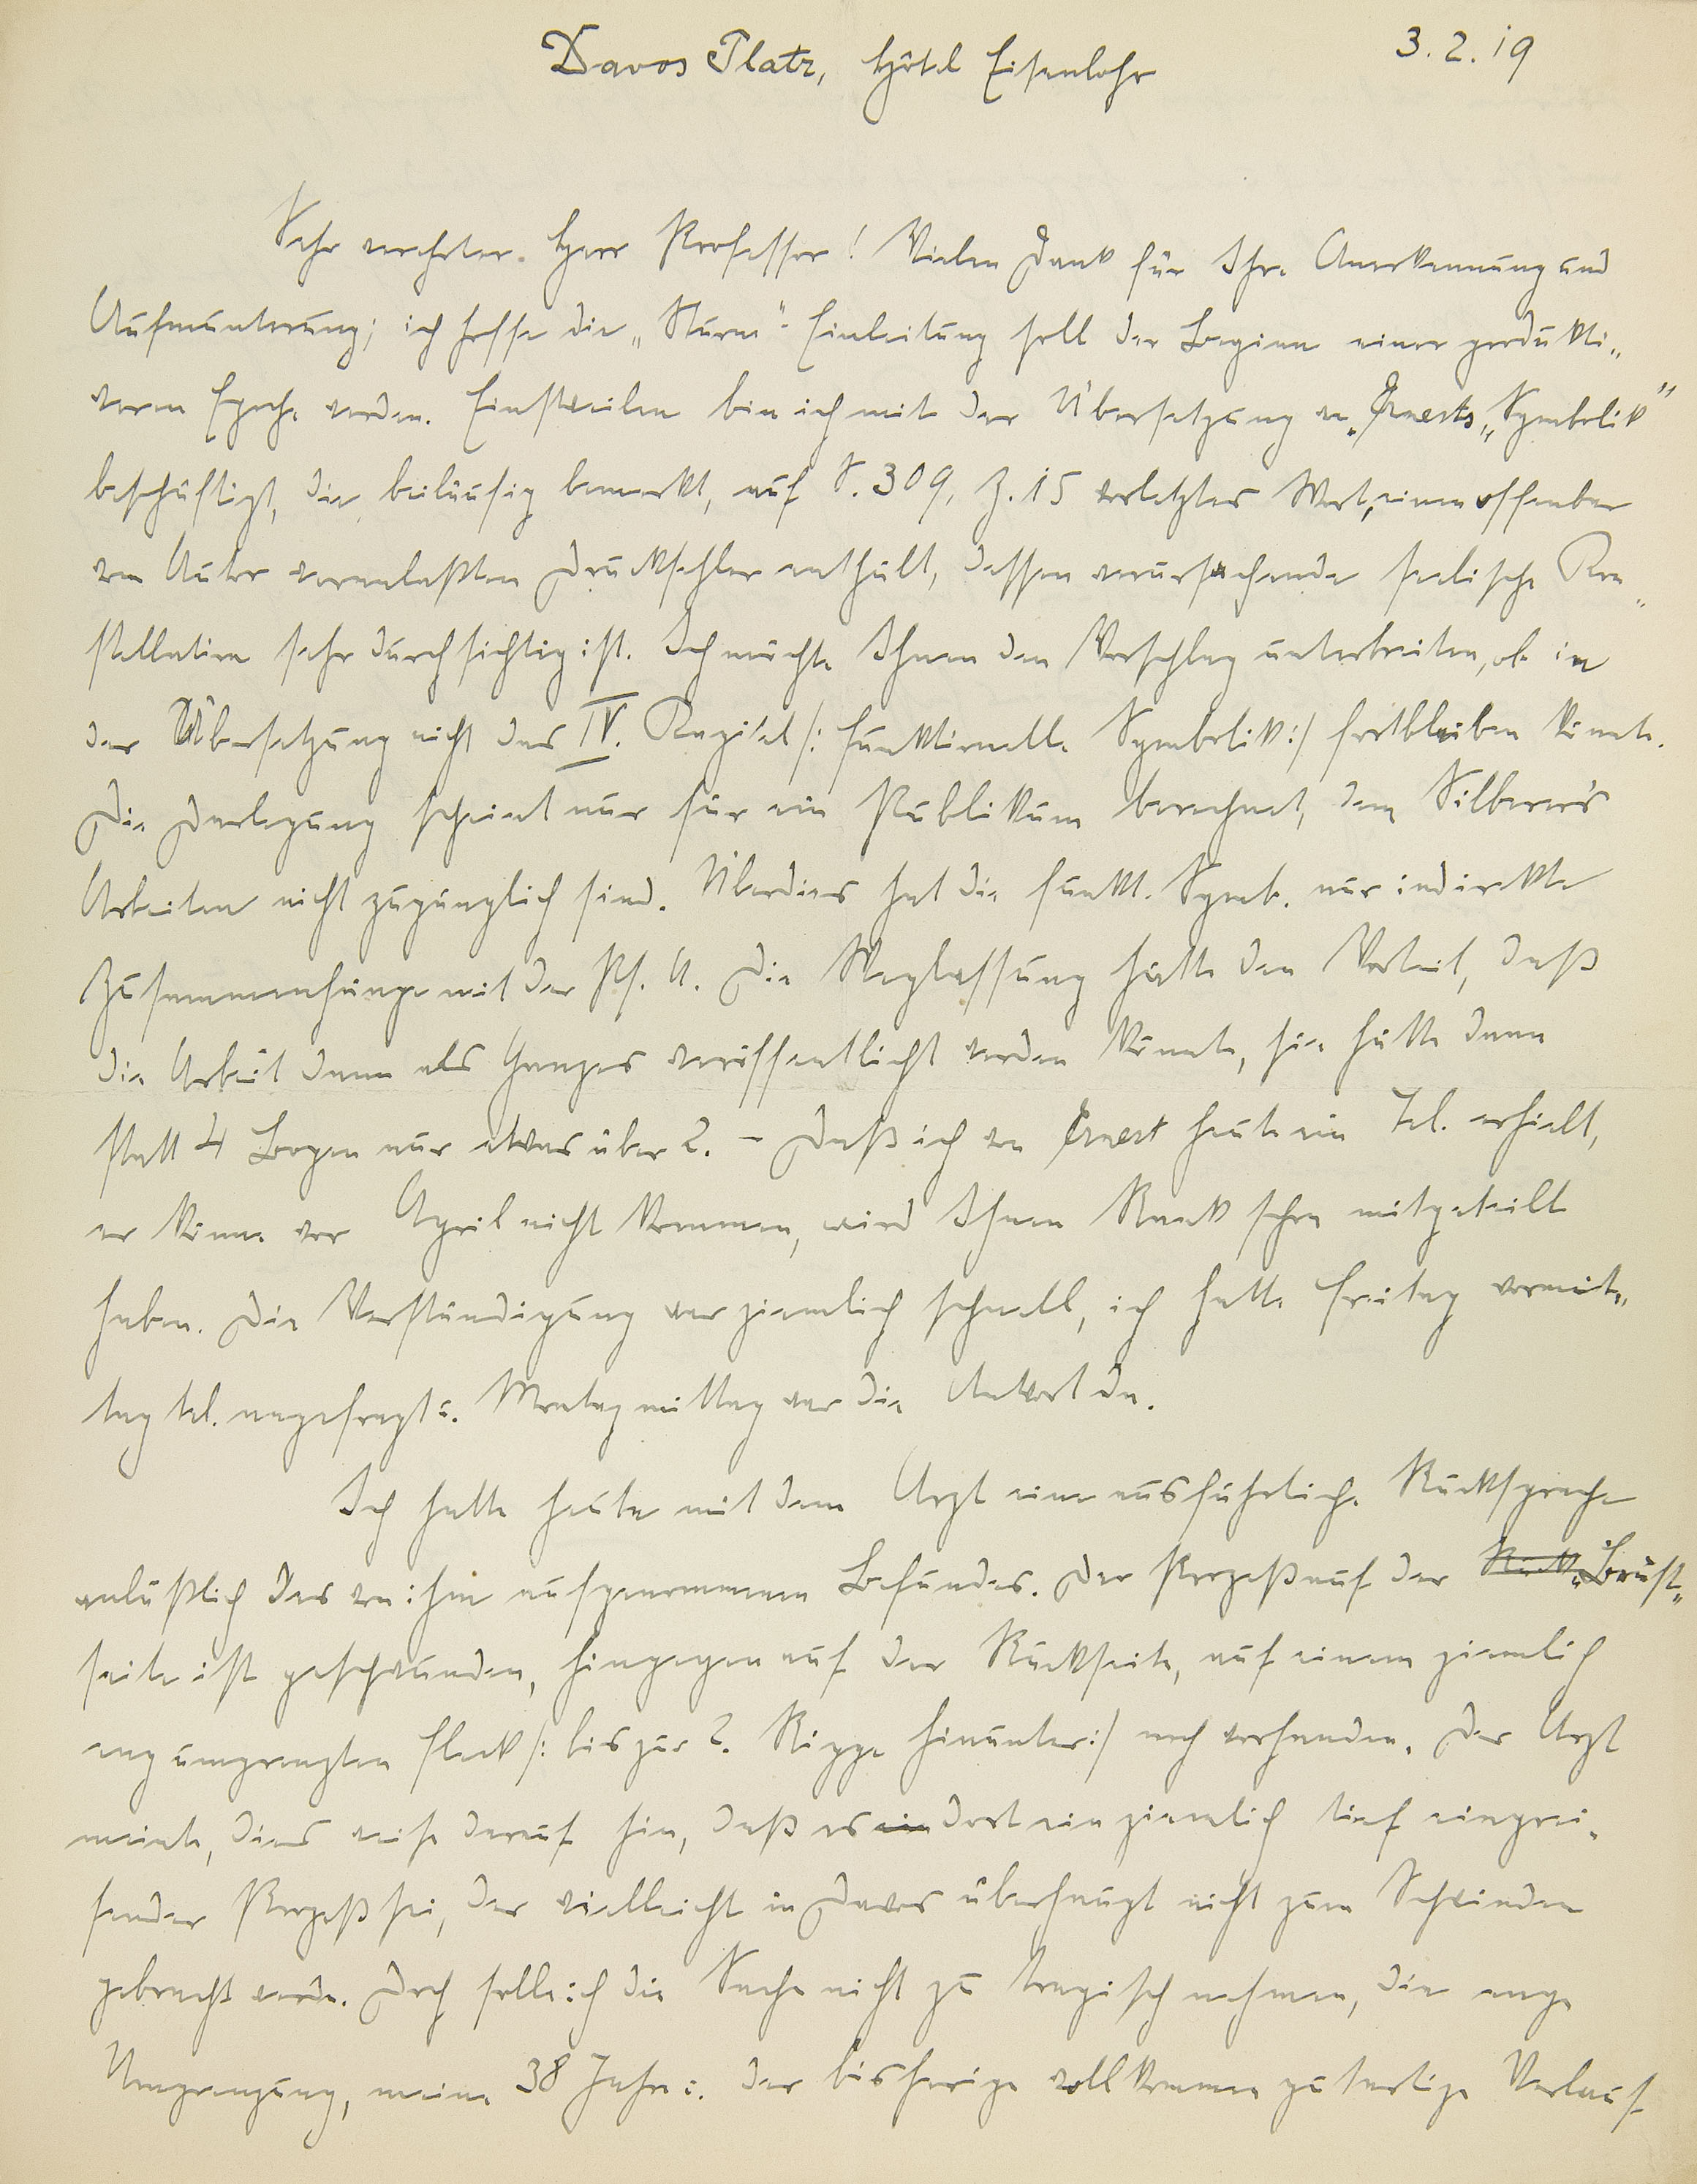 Davos Platz, Hôtel Eisenlohr
3. 2. 19
Sehr verehrter Herr Professor! Vielen Dank für Ihre Anerkennung und
Aufmunterung; ich hoffe die „Sturm"-Einleitung soll der Beginn einer produkti„
veren Epoche werden. Einstweilen bin ich mit der Übersetzung von Jonests „Symbolik"
beschäftigt, die, beiläufig bemerkt, auf S. 309, Z. 15 vorletztes Wort, einen offenbar
vom Autor veranlaßten Druckfehler enthält, dessen verursachende seelische Kon„
stellation sehr durchsichtig ist. Ich möchte Ihnen den Vorschlag unterbreiten, ob in
der Übersetzung nicht das IV. Kapitel /: funktionelle Symbolik :/ fortbleiben könnte.
Die Darlegung scheint nur für ein Publikum berechnet, dem Silberer's
Arbeiten nicht zugänglich sind. Überdies hat die funkt. Symb. nur indirekte
Zusammenhänge mit der Ps. A. Die Weglassung hätte den Vorteil, daß
die Arbeit dann als Ganzes veröffentlicht werden könnte, sie hätte dann
statt 4 Bogen nur etwas über 2. – Daß ich von heute ein Tel. erhielt,
er könne vor April nicht kommen, wird Ihnen Rank schon mitgeteilt
haben. Die Verständigung war ziemlich schnell, ich hatte Freitag vormit„
tag tel. angefragt u. Montag mittag war die Antwort da.
Ich hatte heute mit dem Arzt eine ausführliche Rücksprache
anläßlich des von ihm aufgenommenen Befundes. Der Prozeß auf der Rück„ Brust„
seite ist geschwunden, hingegen auf der Rückseite, auf einem ziemlich
eng umgrenzten Fleck /: bis zur 2. Rippe hinunter :/ noch vorhanden. Der Arzt
meinte, dies weise darauf hin, daß es ein dort ein ziemlich tief eingrei„
fender Prozeß sei, der vielleicht in Davos überhaupt nicht zum Schwinden
gebracht werde. Doch solle ich die Sache nicht zu tragisch nehmen, die enge
Umgrenzung, meine 38 Jahre u. der bisherige vollkommen gutartige Verlauf